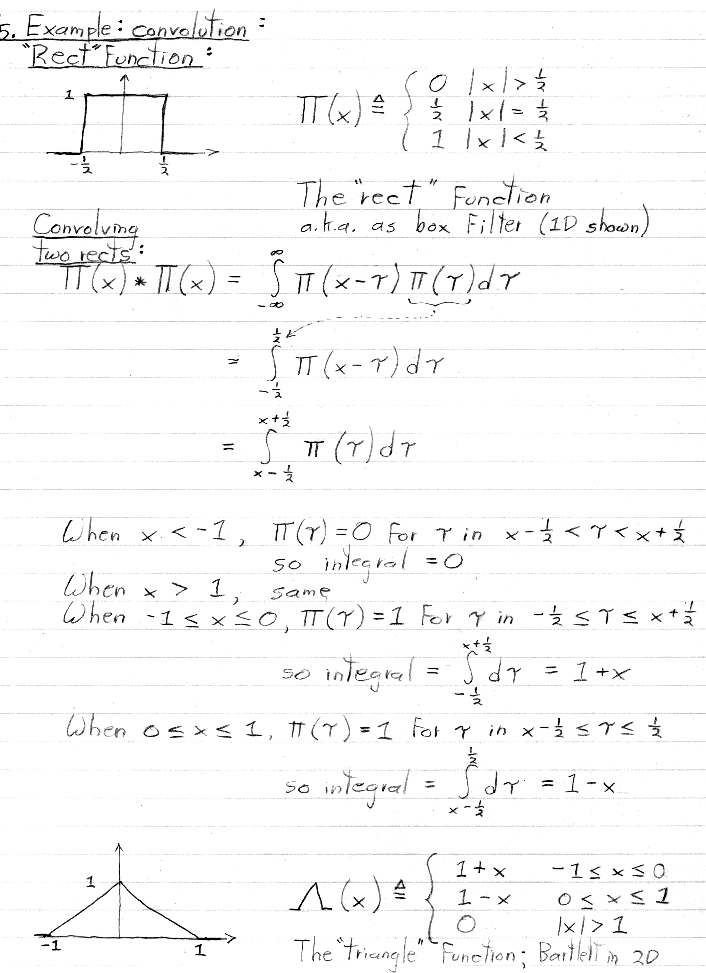 5. Example: convolution:
"Rect" Function:
1
-1/2 1/2
Π(x) ≜ { 0 |x| > 1/2
1/2 |x| = 1/2
1 |x| < 1/2
The "rect" Function
a.k.a. as box Filter (1D shown)
Convolving
two rects:
Π(x) * Π(x) = ∫_{-∞}^{∞} Π(x-τ) Π(τ) dτ
= ∫_{-1/2}^{1/2} Π(x-τ) dτ
= ∫_{x-1/2}^{x+1/2} Π(τ) dτ
When x < -1, Π(τ) = 0 For τ in x-1/2 < τ < x+1/2
so integral = 0
When x > 1, same
When -1 ≤ x ≤ 0, Π(τ) = 1 For τ in -1/2 ≤ τ ≤ x+1/2
so integral = ∫_{-1/2}^{x+1/2} dτ = 1+x
When 0 ≤ x ≤ 1, Π(τ) = 1 For τ in x-1/2 ≤ τ ≤ 1/2
so integral = ∫_{x-1/2}^{1/2} dτ = 1-x
1
-1 1
Λ(x) ≜ { 1+x -1 ≤ x ≤ 0
1-x 0 ≤ x ≤ 1
0 |x| > 1
The "triangle" Function; Bartlett in 2D